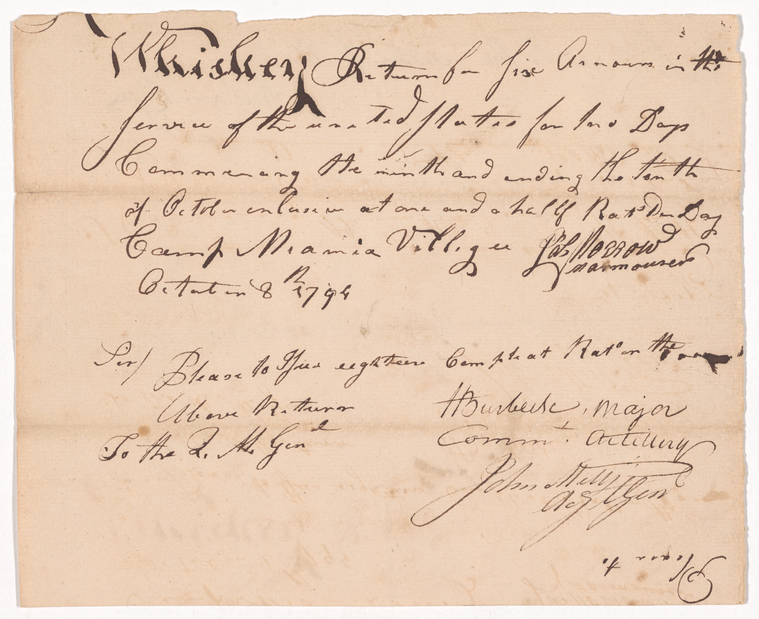 Whiskey Return for Six Armours in the
Service of the united States for two Days
Commencing the ninth and ending the tenth
of October inclusive at one and a half Rats Per Day
Camp Miamia Villigee Jas Morrow
Armourer
October 8th 1794
Sir/ Please to Issue eighteen Compleat Rats on the
Above Return
HBurbeck, Major
Commt. Artillery
To the Q. M. Genl
John Mills
Adj. Genl